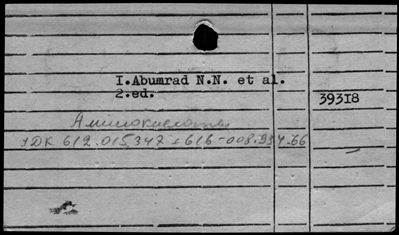 I.Abumrad N.N. et al.
2.ed.
39318
Аминокислоты
УДК 612.015.347 : 616-008.934.66